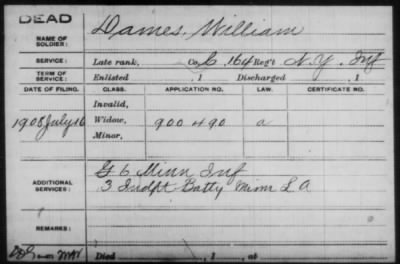 DEAD
NAME OF SOLDIER: Dames, William
SERVICE: Late rank, Co. C, 164 Reg't N.Y. Inf
TERM OF SERVICE: Enlisted , 1 Discharged , 1
DATE OF FILING. CLASS. APPLICATION NO. LAW. CERTIFICATE NO.
Invalid,
1908 July 16 Widow, 900490 a
Minor,
ADDITIONAL SERVICES: G 6 Minn Inf
3 Indpt Batty Minn L A
REMARKS:
Died , 1 , at